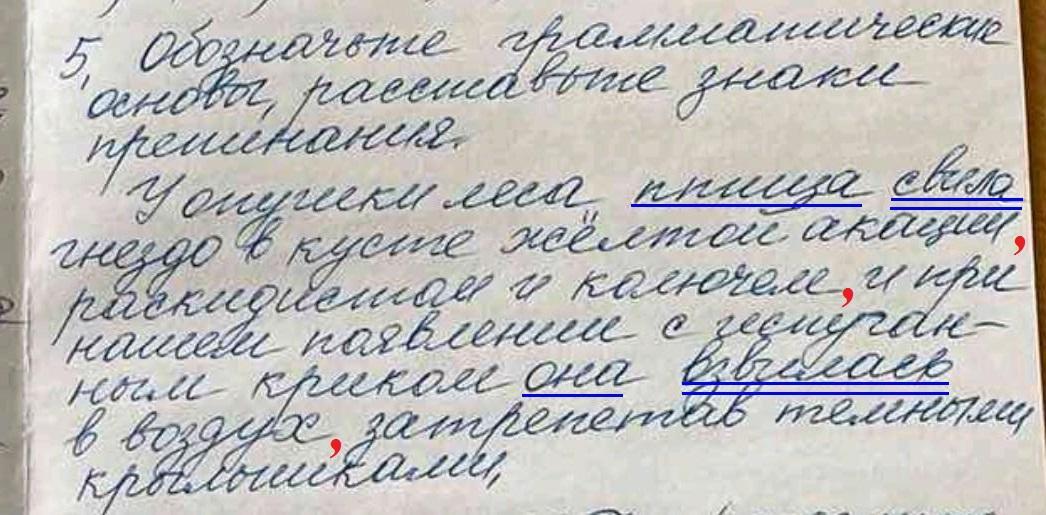 5. Обозначьте грамматические
основы, расставьте знаки
препинания.
У опушки леса птица свила
гнездо в кусте жёлтой акации,
раскидистом и колючем, и при
нашем появлении с испуган-
ным криком она взвилась
в воздух, затрепетав темными
крылышками.